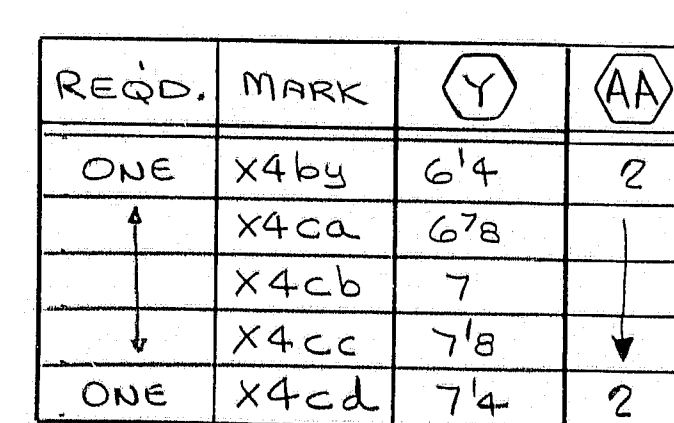 REQ'D. MARK Y AA
ONE x4by 6'4 2
x4ca 6⁷8
x4cb 7
x4cc 7'8
ONE x4cd 7'4 2